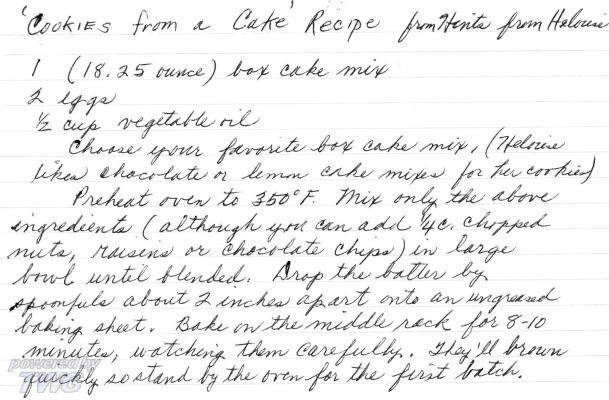 'Cookies from a Cake' Recipe from Hints from Heloise
1 (18.25 ounce) box cake mix
2 eggs
½ cup vegetable oil
Choose your favorite box cake mix, (Heloise
likes chocolate or lemon cake mixes for her cookies)
Preheat oven to 350°F. Mix only the above
ingredients (although you can add ¼ c. chopped
nuts, raisins or chocolate chips) in large
bowl until blended. Drop the batter by
spoonfuls about 2 inches apart onto an ungreased
baking sheet. Bake on the middle rack for 8-10
minutes, watching them carefully. They'll brown
quickly so stand by the oven for the first batch.
powered by
TWG